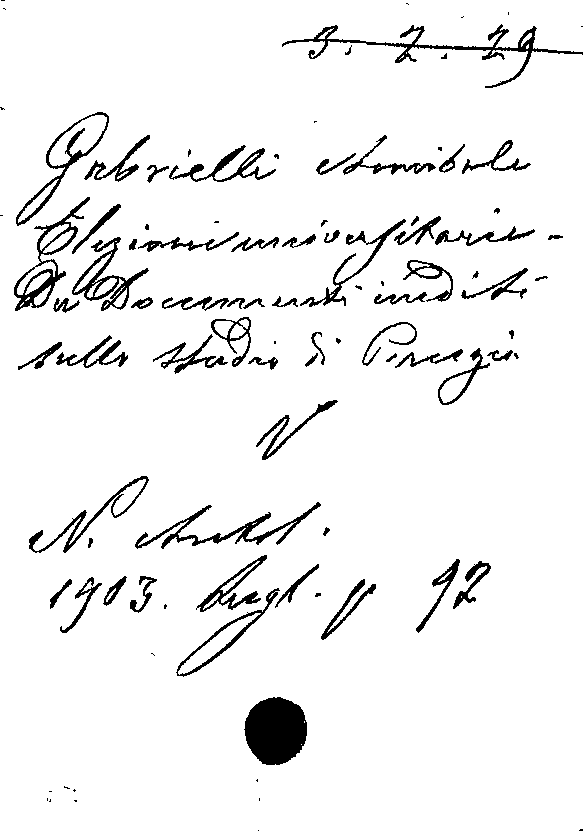 3. 2. 29
Gabrielli Annibale
Elezioni universitarie -
Da Documenti inediti
sullo studio di Perugia
V
N. Antol.
1903. Lugl. p 92